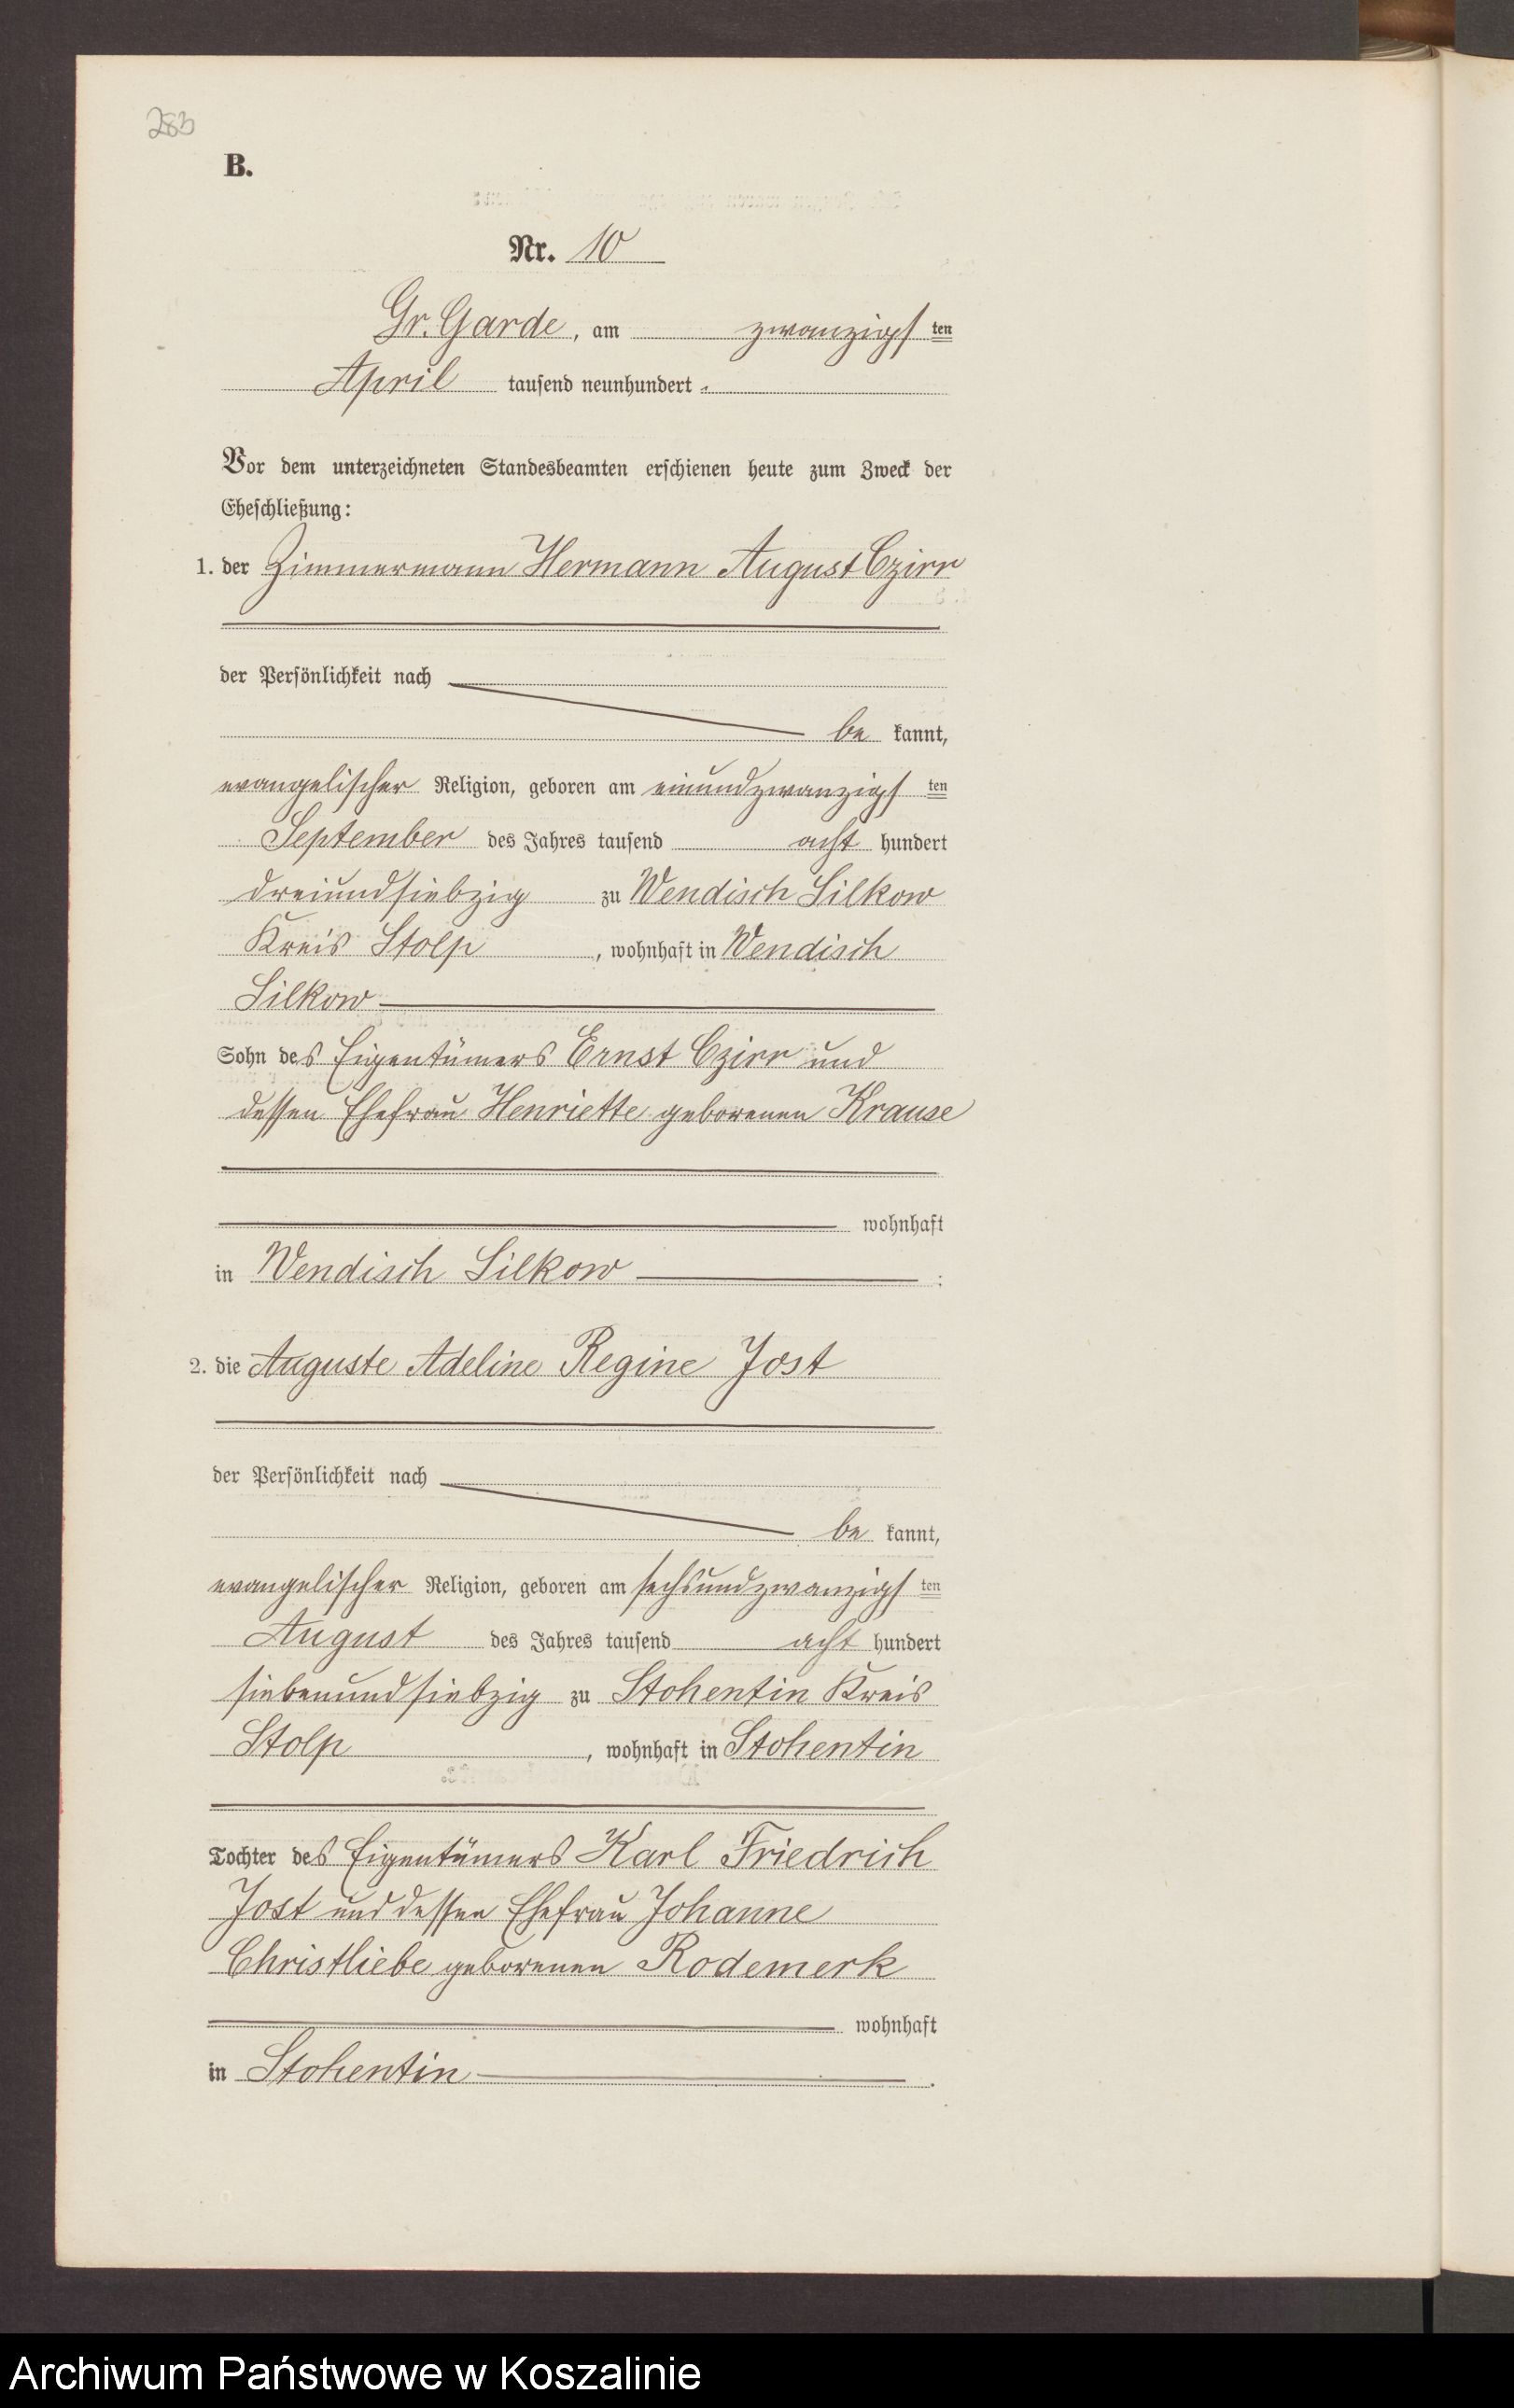 283
B.
Nr. 10
Gr. Garde, am zwanzigsten
April tausend neunhundert
Vor dem unterzeichneten Standesbeamten erschienen heute zum Zweck der
Eheschließung:
1. der Zimmermann Hermann August Czirr
der Persönlichkeit nach
be kannt,
evangelischer Religion, geboren am einundzwanzigsten
September des Jahres tausend acht hundert
dreiundsiebzig zu Wendisch Silkow
Kreis Stolp, wohnhaft in Wendisch
Silkow
Sohn des Eigentümers Ernst Czirr und
dessen Ehefrau Henriette geborenen Krause
wohnhaft
in Wendisch Silkow :
2. die Auguste Adeline Regine Jost
der Persönlichkeit nach
be kannt,
evangelischer Religion, geboren am sechsundzwanzigsten
August des Jahres tausend acht hundert
siebenundsiebzig zu Stohentin Kreis
Stolp, wohnhaft in Stohentin
Tochter des Eigentümers Karl Friedrich
Jost und dessen Ehefrau Johanne
Christliebe geborenen Rodemerk
wohnhaft
in Stohentin.
Archiwum Państwowe w Koszalinie